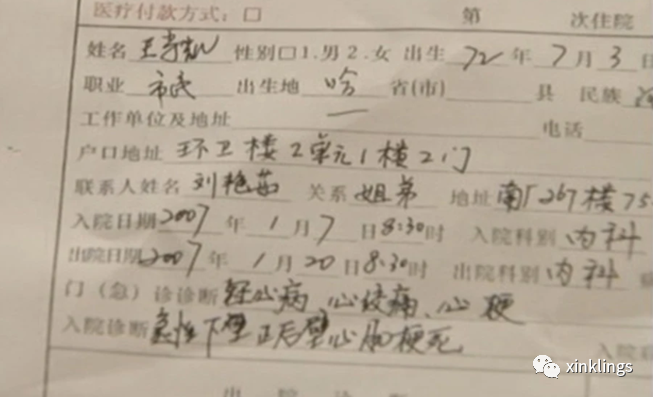 医疗付款方式：口 第 次住院
姓名 王 性别口1.男2.女 出生 72年7月3日
职业 市民 出生地 哈 省(市) 县 民族
工作单位及地址 一 电话
户口地址 环卫楼2单元1楼2门
联系人姓名 刘艳茹 关系 姐弟 地址 南厂267楼75
入院日期2007年1月7日8:30时 入院科别 内科
出院日期2007年1月20日8:30时 出院科别 内科
门（急）诊诊断 冠心病、心绞痛、心梗
入院诊断 急性下壁正后壁心肌梗死 入院
出 院 诊
xinklings